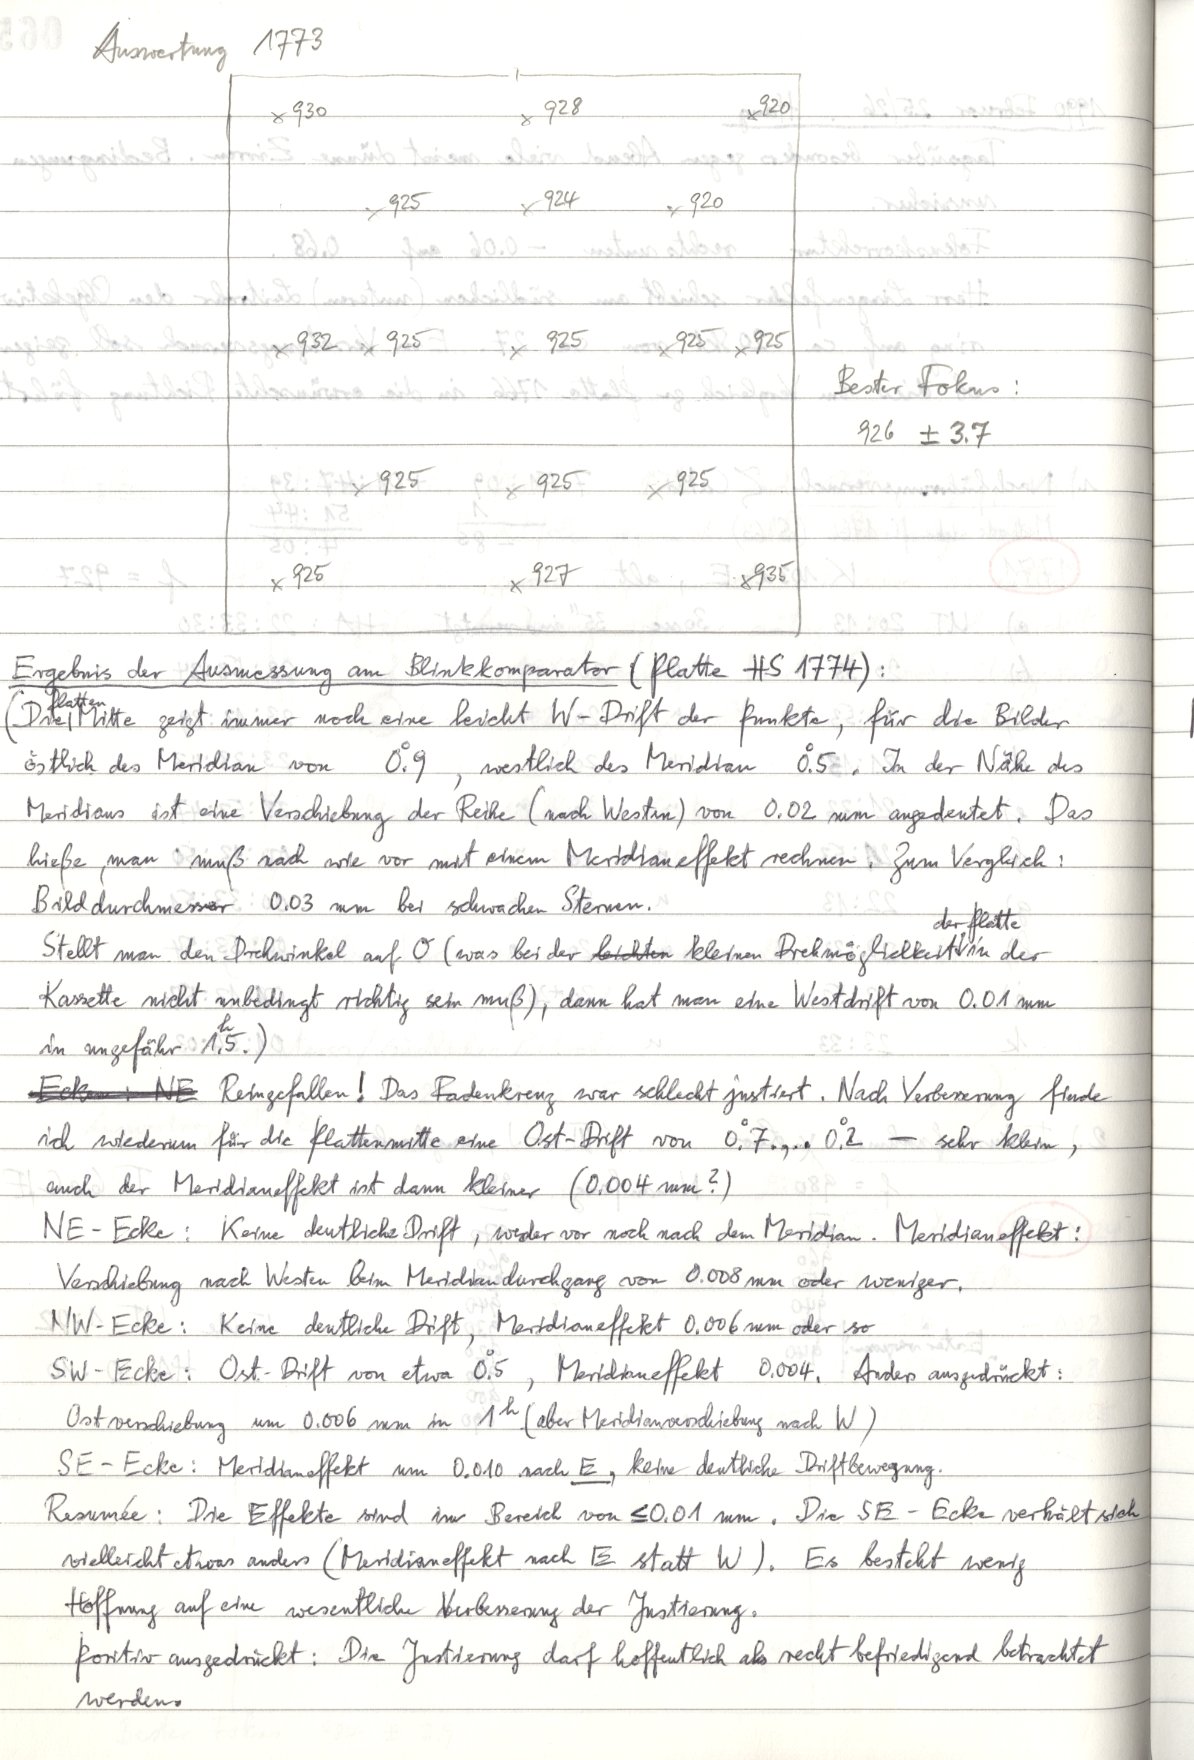 Auswertung 1773
× 930 × 928 × 920
× 925 × 924 × 920
× 932 × 925 × 925 × 925 × 925
Bester Fokus:
926 ± 3.7
× 925 × 925 × 925
× 925 × 927 × 935
Ergebnis der Ausmessung am Blinkkomparator (Platte HS 1774):
(Die Plattenmitte zeigt immer noch eine leicht W-Drift der Punkte, für die Bilder
östlich des Meridian von 0°.9, westlich des Meridian 0°.5. In der Nähe des
Meridians ist eine Verschiebung der Reihe (nach Westen) von 0.02 mm angedeutet. Das
hieße, man muß nach wie vor mit einem Meridianeffekt rechnen. Zum Vergleich:
Bilddurchmesser 0.03 mm bei schwachen Sternen.
Stellt man den Drehwinkel auf 0 (was bei der leichten kleinen Drehmöglichkeit der Platte in der
Kassette nicht unbedingt richtig sein muß), dann hat man eine Westdrift von 0.01 mm
in ungefähr 1h.5.)
Ecken: NE Reingefallen! Das Fadenkreuz war schlecht justiert. Nach Verbesserung finde
ich wiederum für die Plattenmitte eine Ost-Drift von 0°.7.,.. 0°.2 — sehr klein,
auch der Meridianeffekt ist dann kleiner (0.004 mm?)
NE-Ecke: Keine deutliche Drift, weder vor noch nach dem Meridian. Meridianeffekt:
Verschiebung nach Westen beim Meridiandurchgang von 0.008 mm oder weniger.
NW-Ecke: Keine deutliche Drift, Meridianeffekt 0.006 mm oder so
SW-Ecke: Ost-Drift von etwa 0°.5, Meridianeffekt 0.004. Anders ausgedrückt:
Ostverschiebung um 0.006 mm in 1h (aber Meridianverschiebung nach W)
SE-Ecke: Meridianeffekt um 0.010 nach E, keine deutliche Driftbewegung.
Resumée: Die Effekte sind im Bereich von ≤0.01 mm. Die SE-Ecke verhält sich
vielleicht etwas anders (Meridianeffekt nach E statt W). Es besteht wenig
Hoffnung auf eine wesentliche Verbesserung der Justierung.
Positiv ausgedrückt: Die Justierung darf hoffentlich als recht befriedigend betrachtet
werden.